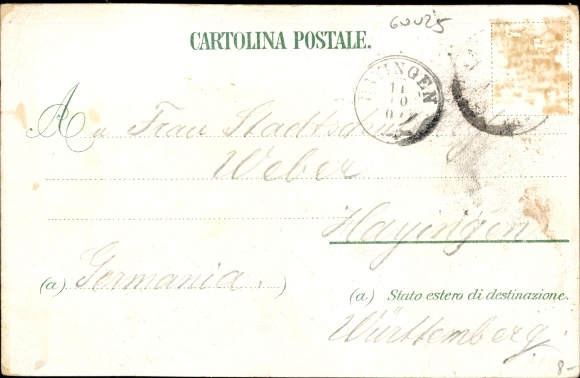 60025
CARTOLINA POSTALE.
HAYINGEN
11
10
An Frau
Weber
Hayingen
(a) Germania. )
(a) Stato estero di destinazione.
Württemberg.
8-